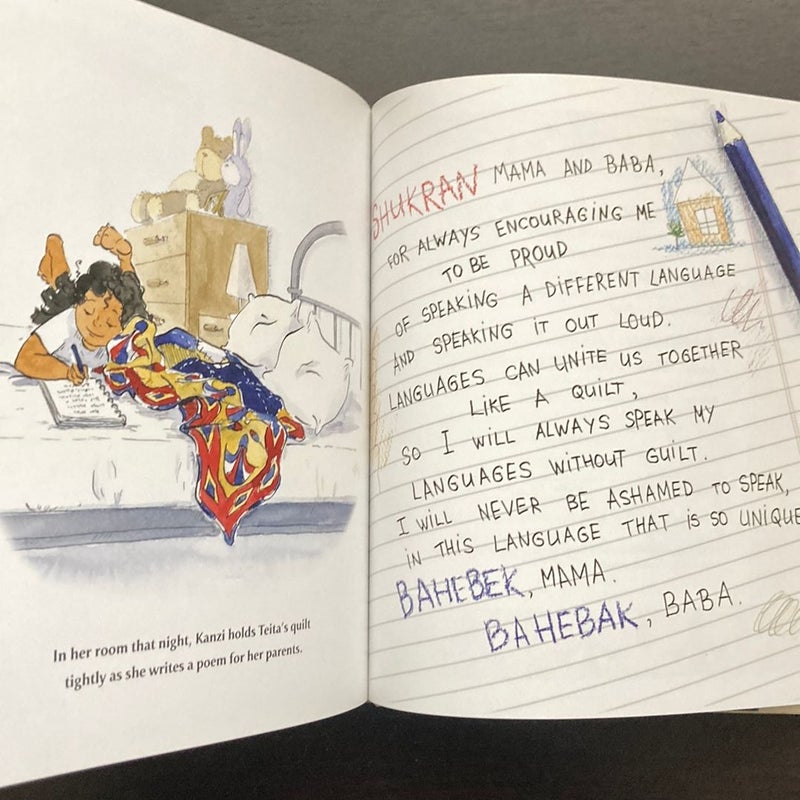 In her room that night, Kanzi holds Teita's quilt
tightly as she writes a poem for her parents.
SHUKRAN MAMA AND BABA,
FOR ALWAYS ENCOURAGING ME
TO BE PROUD
OF SPEAKING A DIFFERENT LANGUAGE
AND SPEAKING IT OUT LOUD.
LANGUAGES CAN UNITE US TOGETHER
LIKE A QUILT,
SO I WILL ALWAYS SPEAK MY
LANGUAGES WITHOUT GUILT.
I WILL NEVER BE ASHAMED TO SPEAK,
IN THIS LANGUAGE THAT IS SO UNIQUE
BAHEBEK, MAMA.
BAHEBAK, BABA.